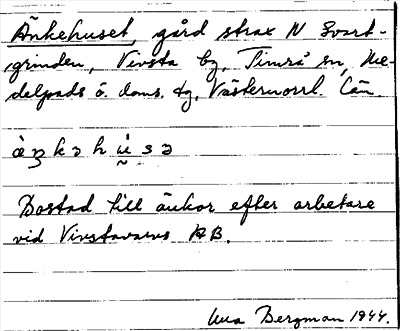 Änkehuset, gård strax N Svart-
grinden, Vivsta by, Timrå sn, Me-
delpads ö. doms. tg, Västernorrl. Län.
àŋkəhùsə
Bostad till änkor efter arbetare
vid Vivstavarvs AB.
Bergman 1944.